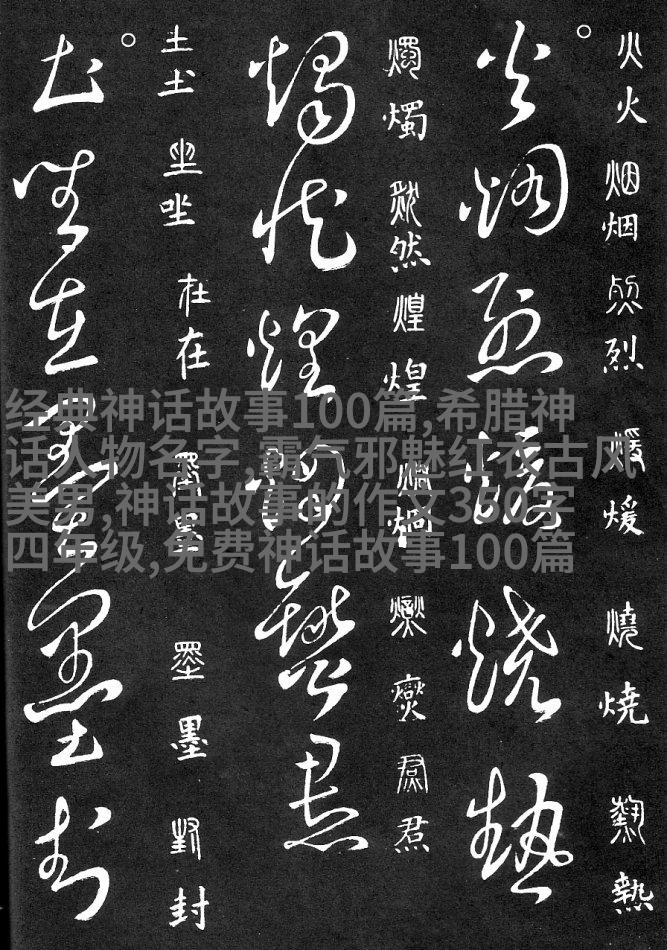 火火 烟烟 烈烈 煖煖 燒燒 熱熱
火烟烈煖燒熱
燭燭 然然 煌煌 燮燮 焄焄
燭然煌燮焄
土土 坐坐 在在 墨墨 封封
土坐在墨封
经典神话故事100篇,希腊神
话人物名字,霸气邪魅红衣古风
美男,神话故事的作文350字
四年级,免费神话故事100篇